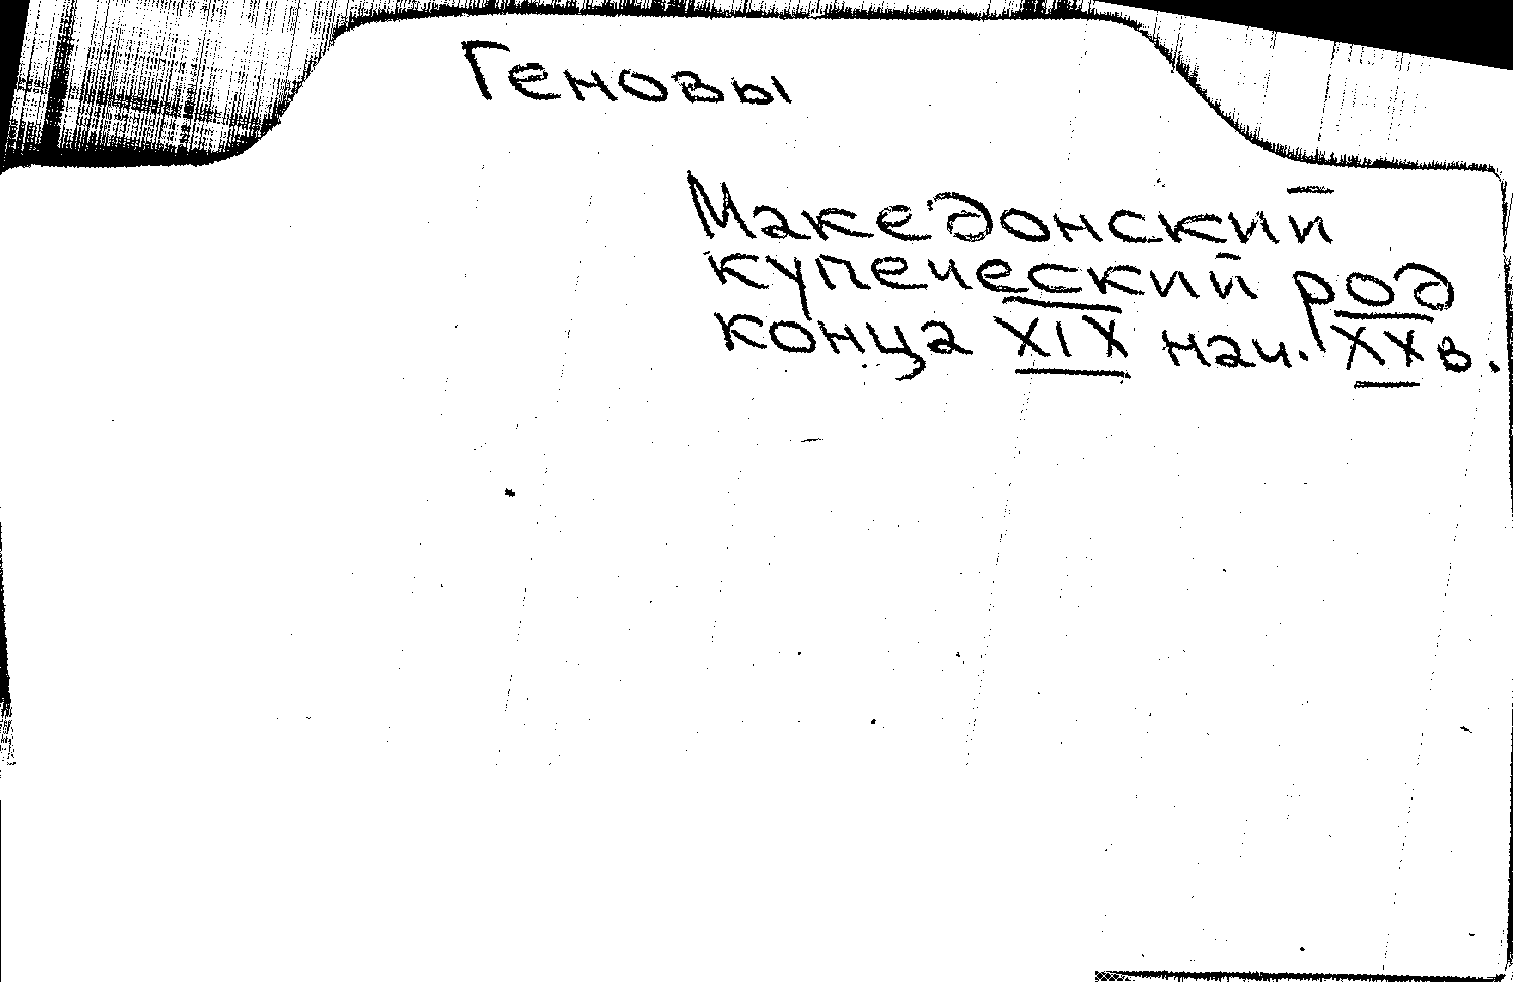 Геновы
Македонский
купеческий род
конца XIX нач. XX в.